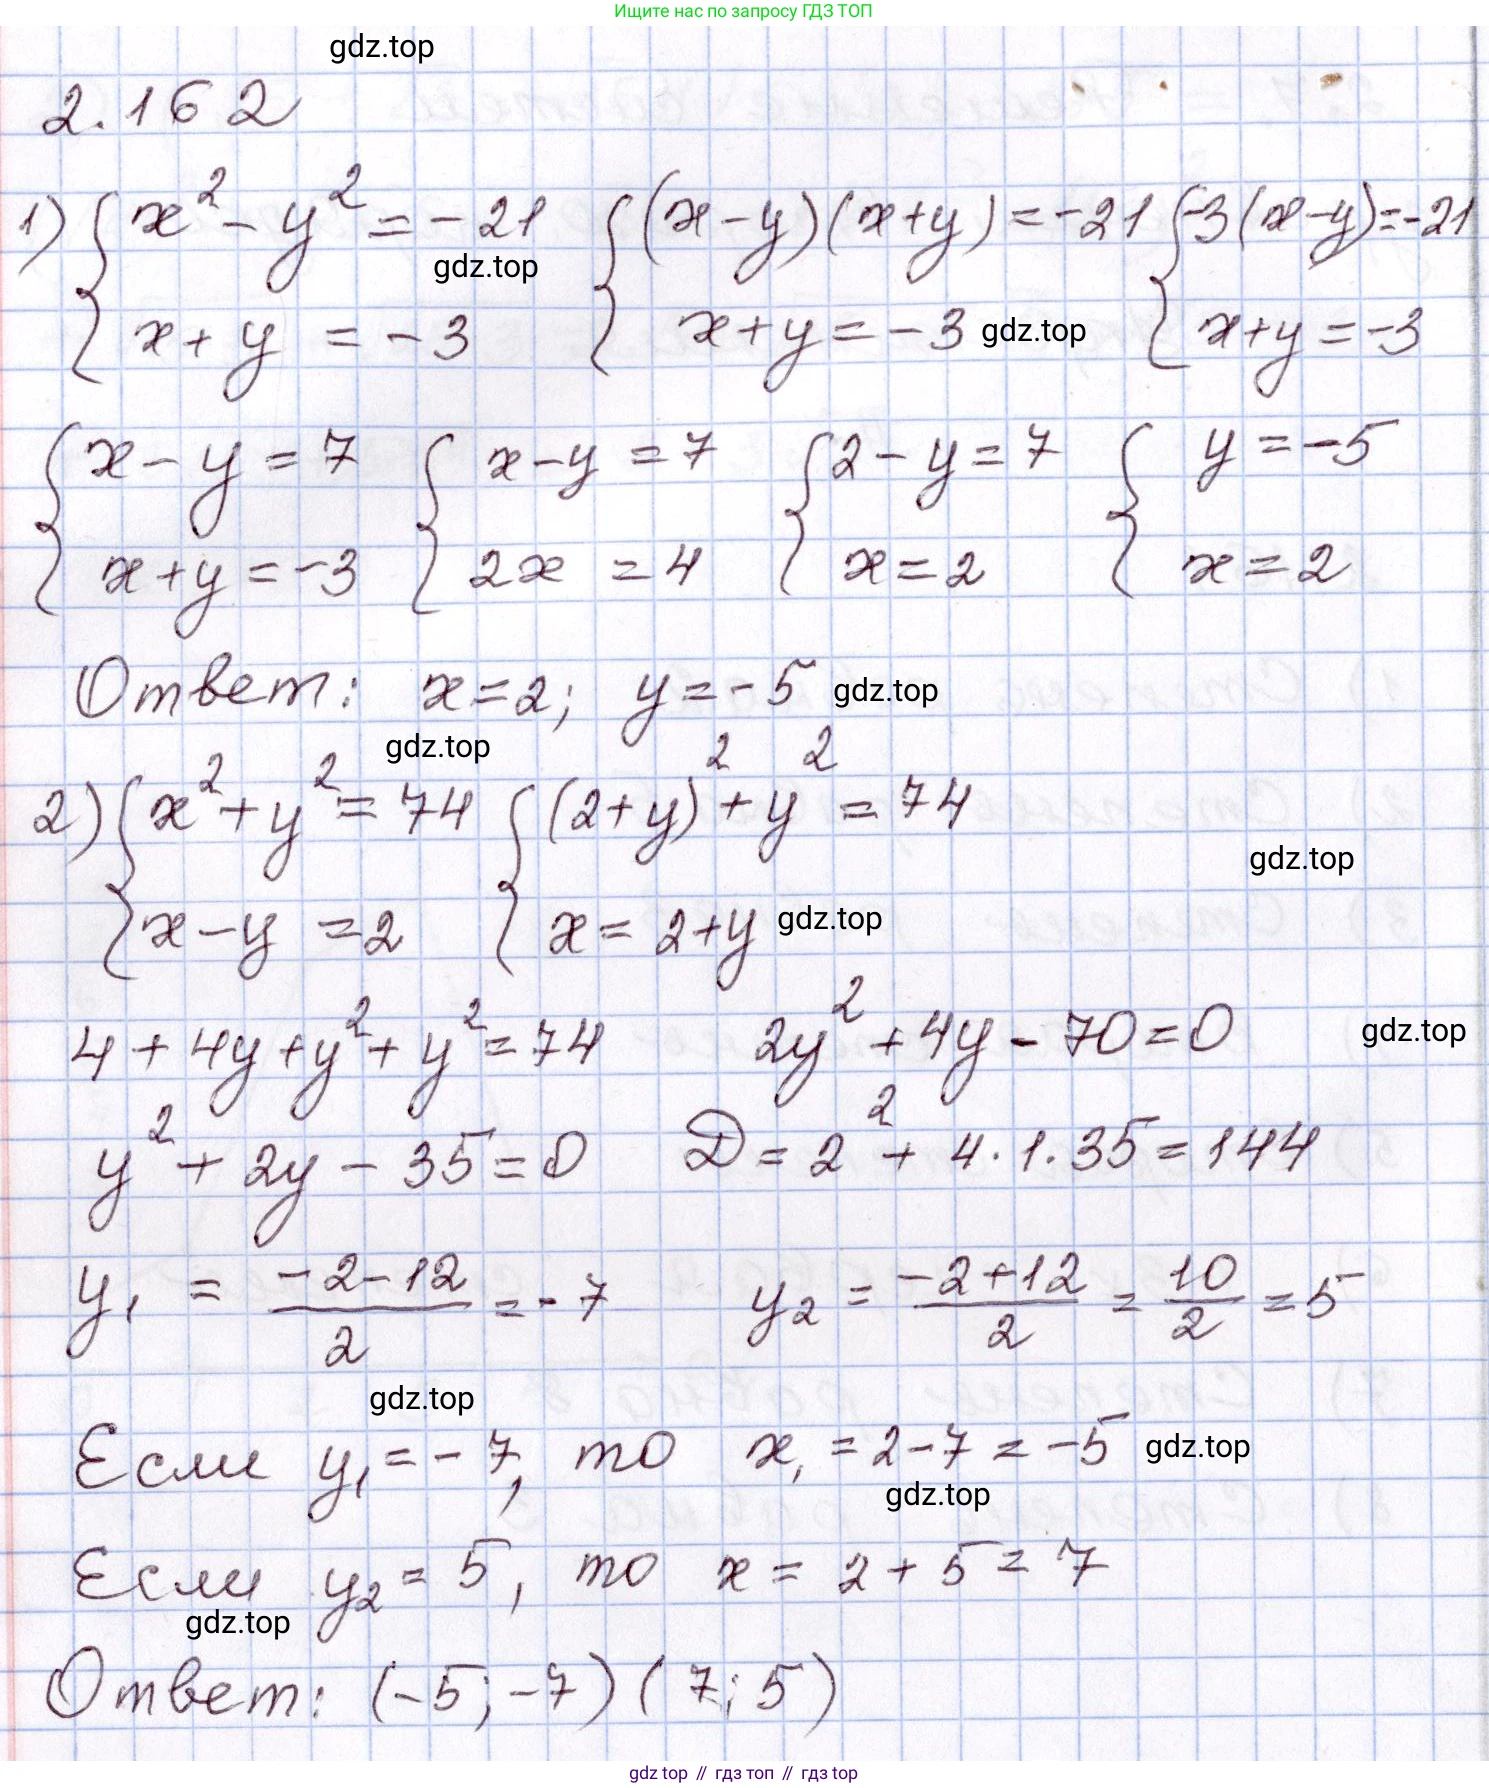 Ищите нас по запросу ГДЗ ТОП
gdz.top
2.162
1) { x² - y² = -21 { (x-y)(x+y) = -21 { -3(x-y) = -21
gdz.top
x + y = -3 x + y = -3 gdz.top x+y = -3
{ x - y = 7 { x - y = 7 { 2 - y = 7 { y = -5
x + y = -3 2x = 4 x = 2 x = 2
Ответ: x = 2; y = -5 gdz.top
gdz.top
2) { x² + y² = 74 { (2+y)² + y² = 74
gdz.top
x - y = 2 x = 2 + y gdz.top
4 + 4y + y² + y² = 74 2y² + 4y - 70 = 0 gdz.top
y² + 2y - 35 = 0 D = 2² + 4·1·35 = 144
y₁ = (-2-12)/2 = -7 y₂ = (-2+12)/2 = 10/2 = 5
gdz.top
Если y₁ = -7, то x₁ = 2 - 7 = -5 gdz.top
gdz.top
Если y₂ = 5, то x = 2 + 5 = 7
gdz.top
Ответ: (-5; -7) (7; 5)
gdz top // гдз топ // гдз top